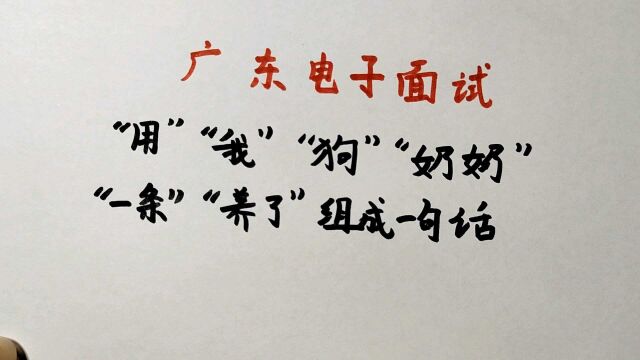 广东电子面试
“用”“我”“狗”“奶奶”
“一条”“养了”组成一句话